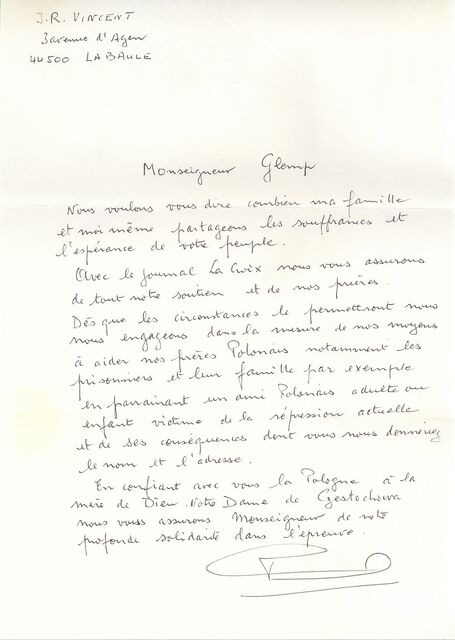 J.R. VINCENT
3 avenue d'Agen
44500 LA BAULE
Monseigneur Glemp
Nous voulons vous dire combien ma famille
et moi même partageons les souffrances et
l'espérance de votre peuple.
Avec le journal La Croix nous vous assurons
de tout notre soutien et de nos prières.
Dés que les circonstances le permettront nous
nous engageons dans la mesure de nos moyens
à aider nos frères Polonais notamment les
prisonniers et leur famille par exemple
en parrainant un ami Polonais adulte ou
enfant victime de la répression actuelle
et de ses conséquences dont vous nous donneriez
le nom et l'adresse.
En confiant avec vous la Pologne à la
mère de Dieu Notre Dame de Czestochowa
nous vous assurons Monseigneur de notre
profonde solidarité dans l'épreuve.